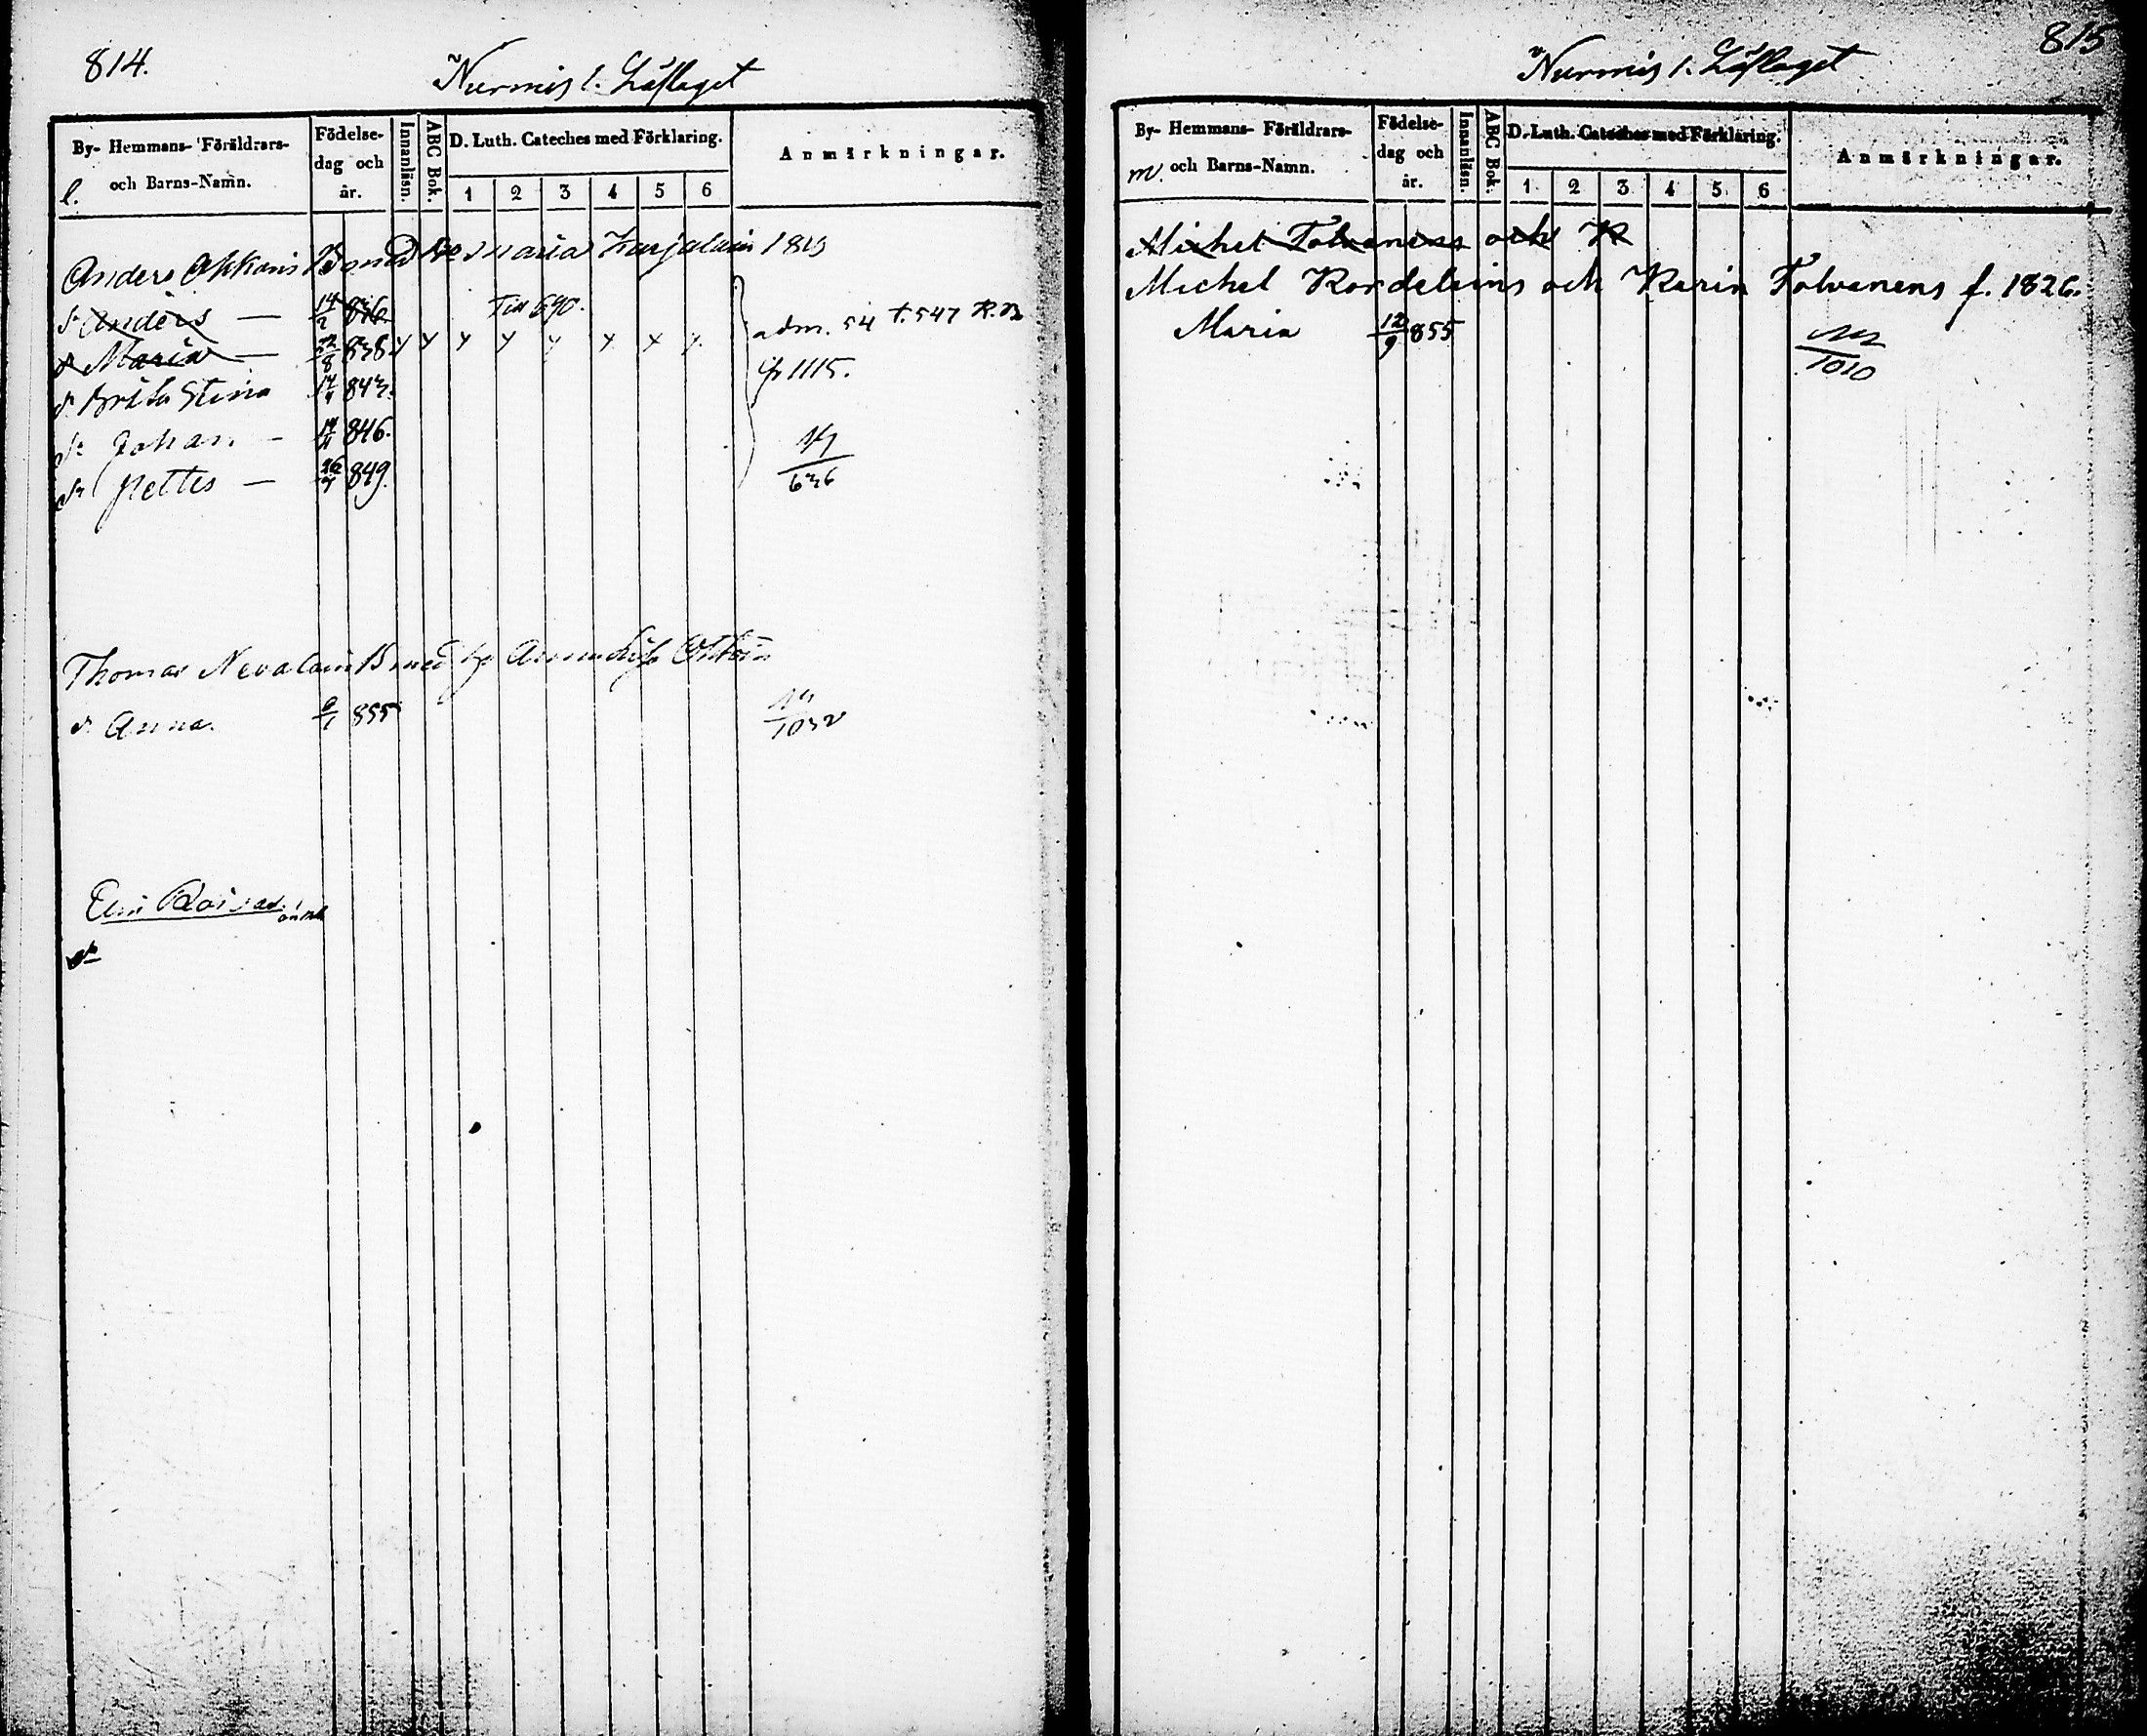 814.
Nurmis 1. Läslaget
By- Hemmans- Föräldrars- och Barns-Namn.
l.
Födelse- dag och år.
Innanläsn.
ABC Bok.
D. Luth. Cateches med Förklaring.
1 2 3 4 5 6
Anmärkningar.
Anders Maria Karjalain 1815
d. Anders — 14/2 836. Till 690.
d. Maria — 22/8 838. y y y y y y x y
adm. 54 t. 547 K.B
fr 1115.
d. Brita Stina 14/4 843.
d. Johan — 846.
d. Pettes — 849.
636
Thomas Nevalain B med
d. Anna. 855
1032
815
Nurmis 1. Läslaget
By- Hemmans- Föräldrars- och Barns-Namn.
m.
Födelse- dag och år.
Innanläsn.
ABC Bok.
D. Luth. Cateches med Förklaring.
1 2 3 4 5 6
Anmärkningar.
Michel Tolvanens och K
Michel Kordelains och Karin Tolvanens f. 1826.
Maria 12/9 855
1010